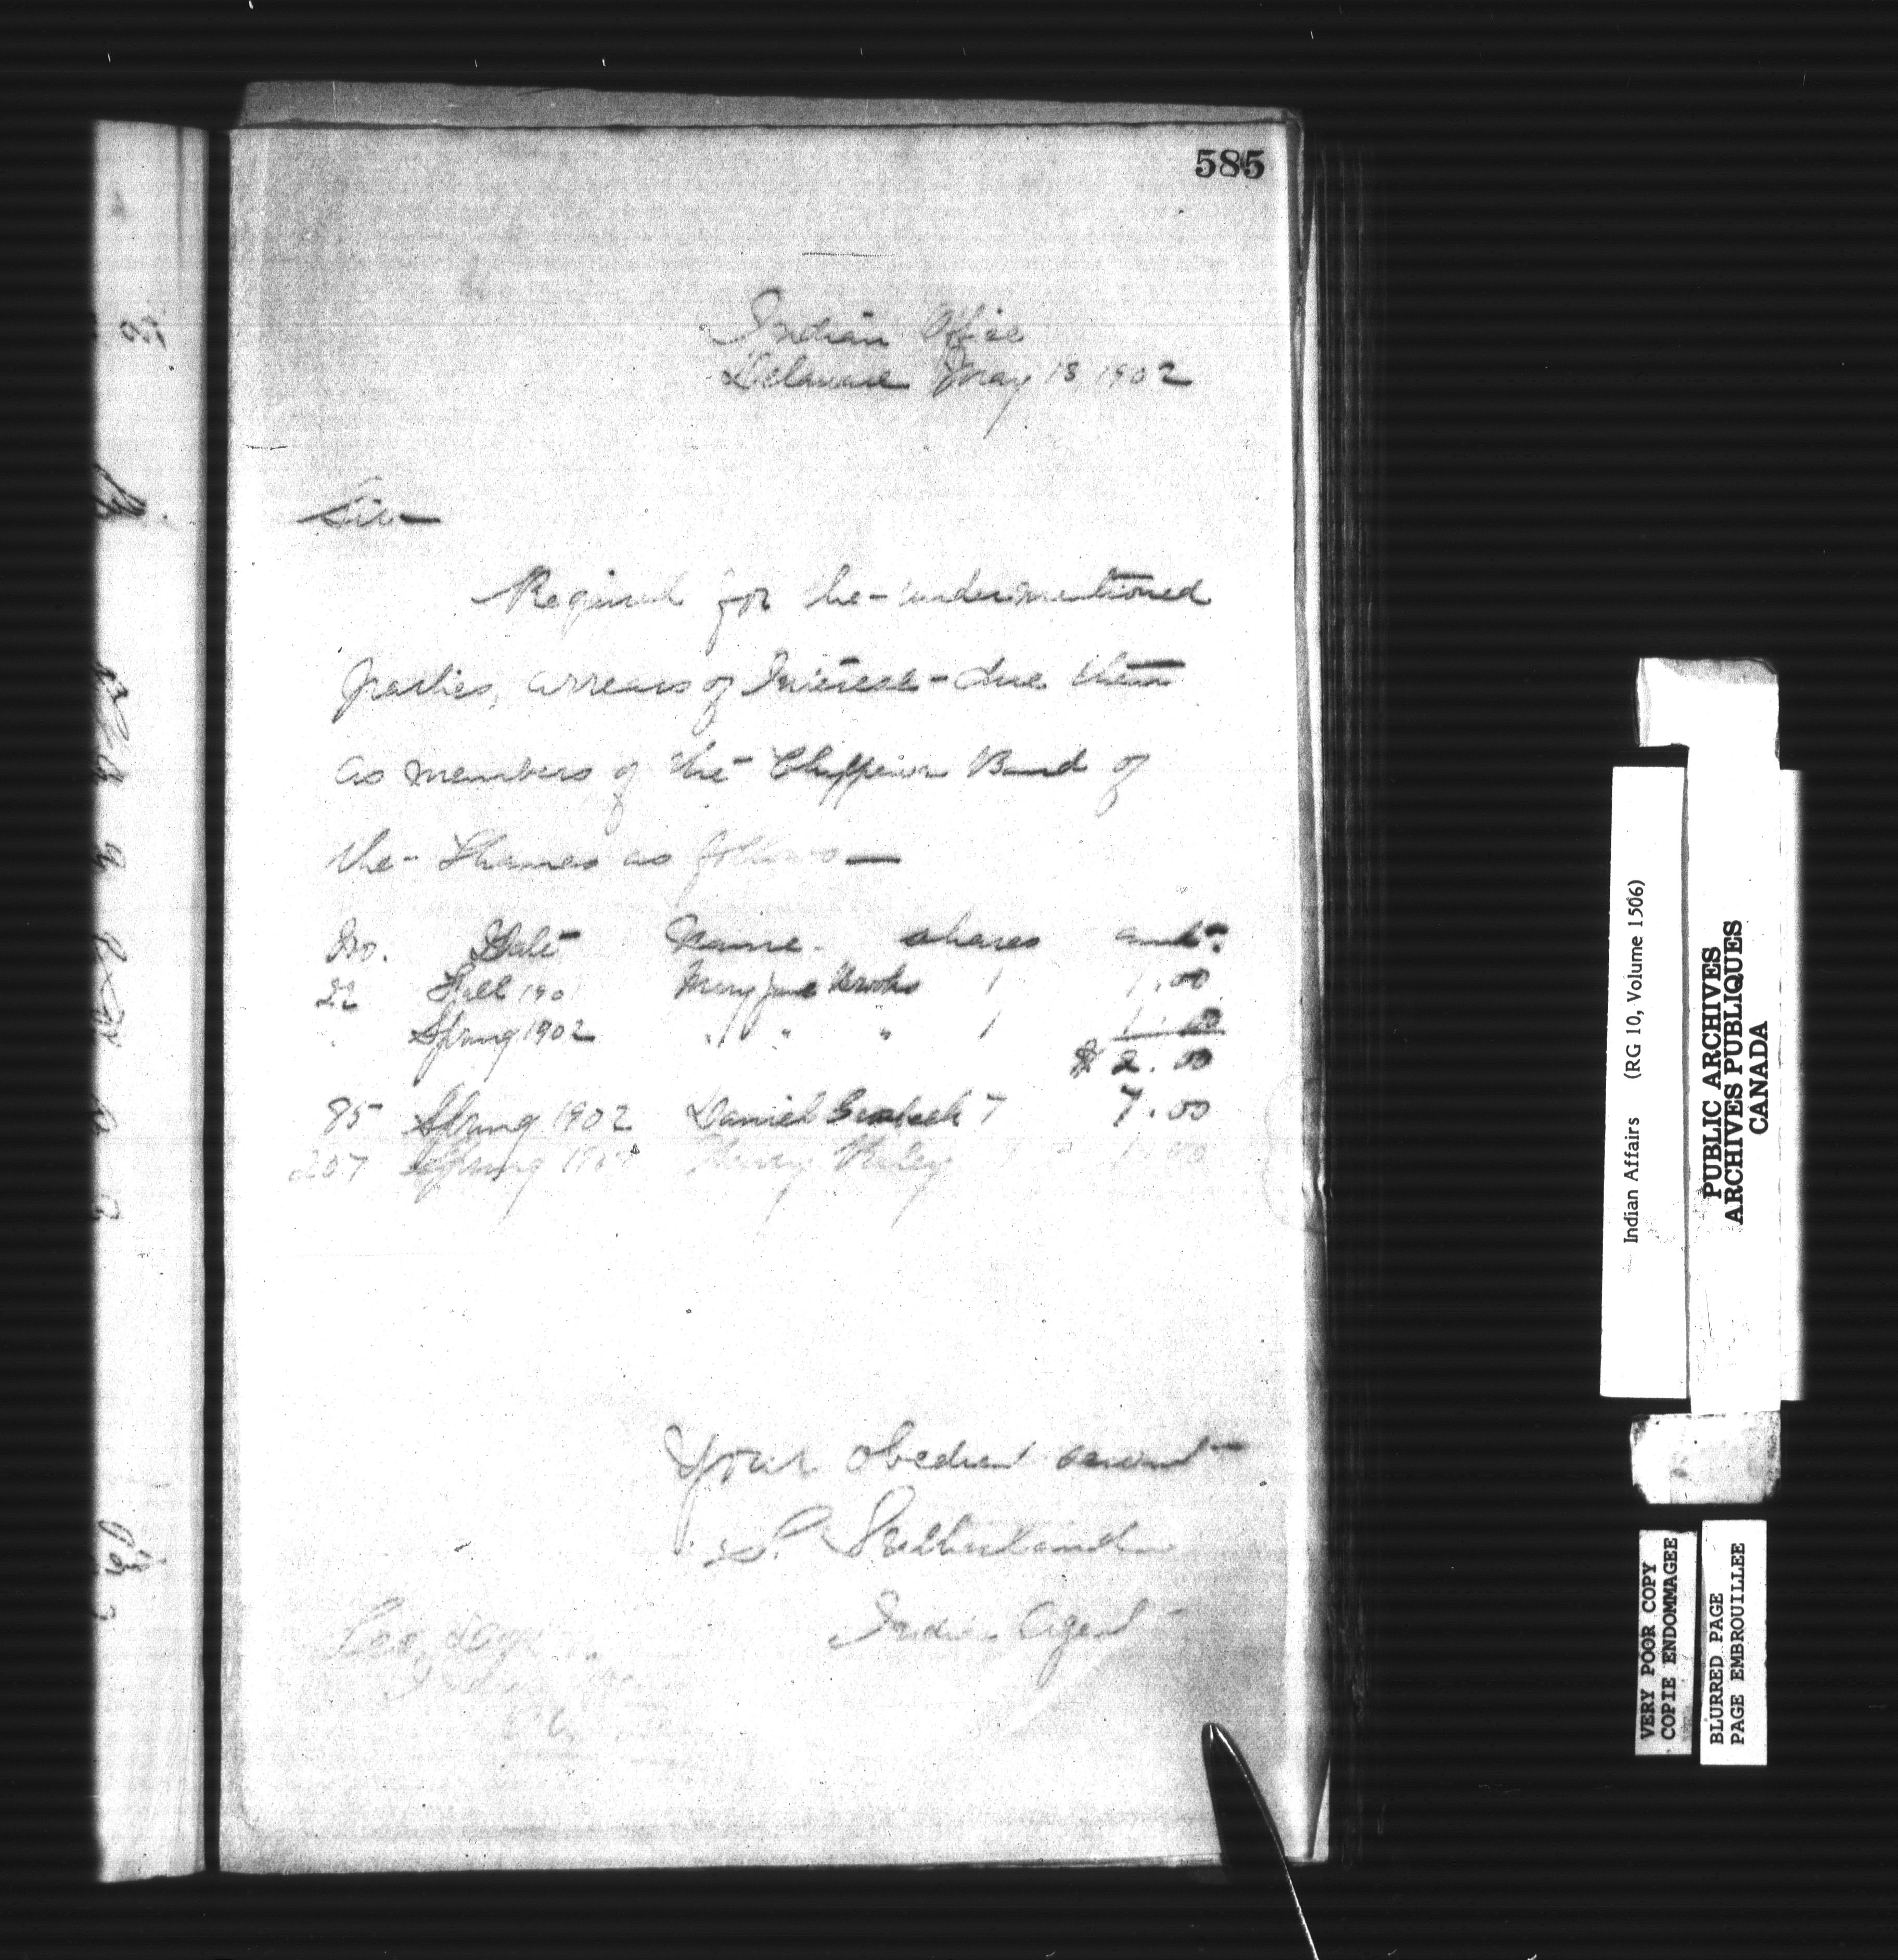 585
Indian Office
Delaware May 13 1902
Sir
Required for the undermentioned
parties, arrears of Interest due them
as members of the Chippewa Band of
the Thames as follows
No. Date Name shares amt.
22 Fall 190 Mary Jane Brooks 1 1.00
Spring 1902 " " " 1 1.00
$2.00
85 Spring 1902 Daniel 7 7.00
207 Spring Henry
Your obedient servant
S. Sutherland
Indian Agent
Indian Affairs (RG 10, Volume 1506)
PUBLIC ARCHIVES
ARCHIVES PUBLIQUES
CANADA
VERY POOR COPY
COPIE ENDOMMAGEE
BLURRED PAGE
PAGE EMBROUILLEE